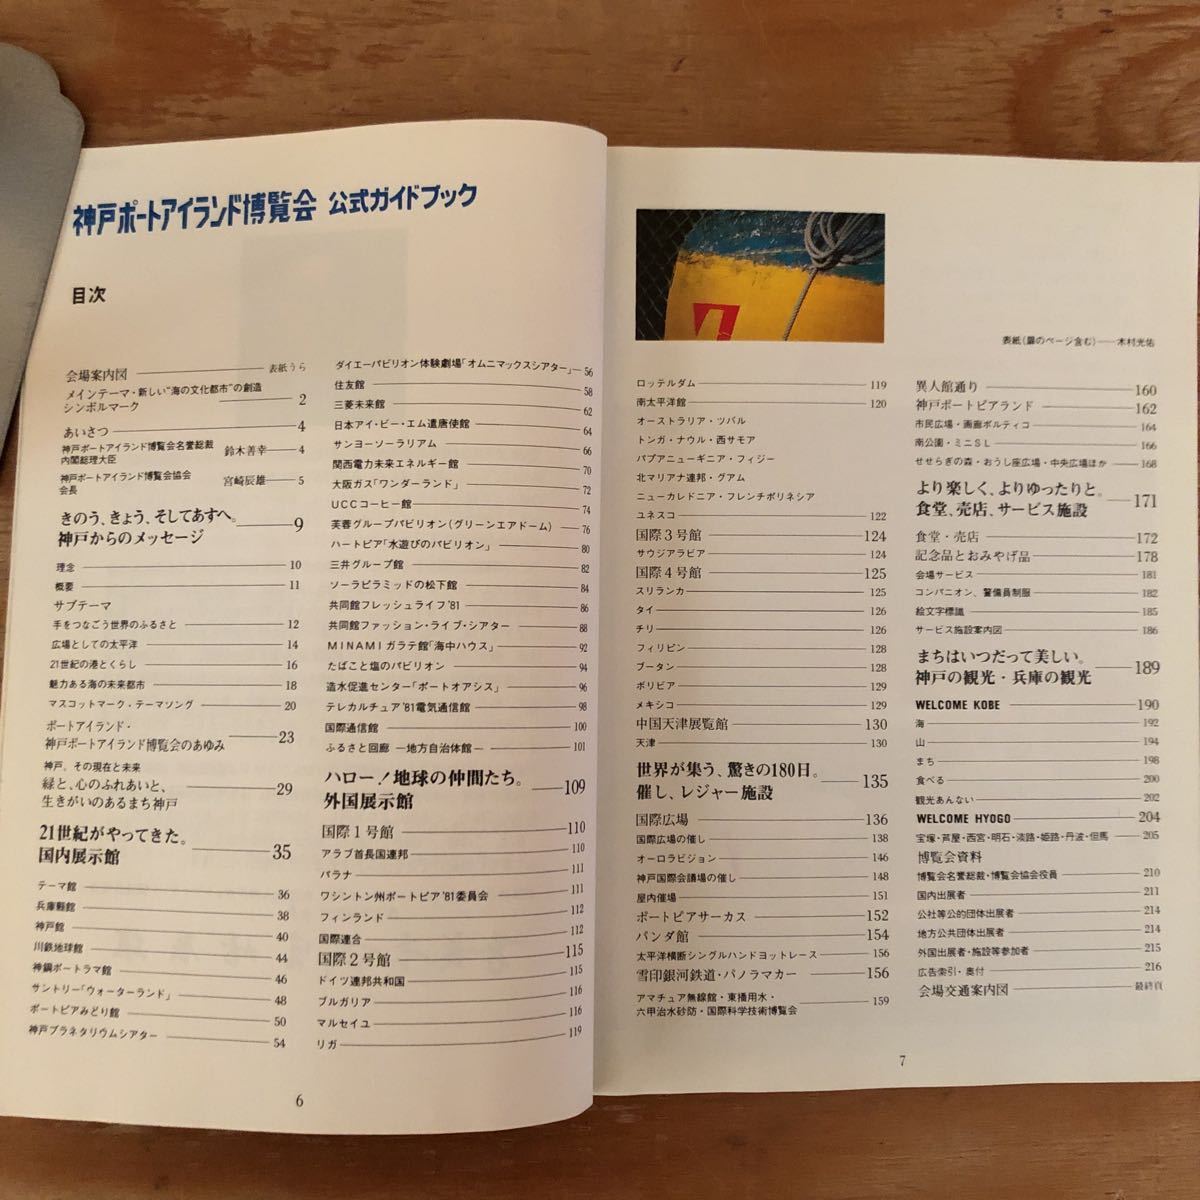 神戸ポートアイランド博覧会 公式ガイドブック
目次
会場案内図 表紙うら
メインテーマ・新しい“海の文化都市”の創造
シンボルマーク 2
あいさつ 4
神戸ポートアイランド博覧会名誉総裁
内閣総理大臣 鈴木善幸 4
神戸ポートアイランド博覧会協会
会長 宮崎辰雄 5
きのう、きょう、そしてあすへ。
神戸からのメッセージ 9
理念 10
概要 11
サブテーマ
手をつなごう世界のふるさと 12
広場としての太平洋 14
21世紀の港とくらし 16
魅力ある海の未来都市 18
マスコットマーク・テーマソング 20
ポートアイランド・
神戸ポートアイランド博覧会のあゆみ 23
神戸。その現在と未来
緑と、心のふれあいと、
生きがいのあるまち神戸 29
21世紀がやってきた。
国内展示館 35
テーマ館 36
兵庫縣館 38
神戸館 40
川鉄地球館 44
神鋼ポートラマ館 46
サントリー「ウォーターランド」 48
ポートピアみどり館 50
神戸プラネタリウムシアター 54
ダイエーパビリオン体験劇場「オムニマックスシアター」 56
住友館 58
三菱未来館 62
日本アイ・ビー・エム遣唐使館 64
サンヨーソーラリアム 66
関西電力未来エネルギー館 70
大阪ガス「ワンダーランド」 72
UCCコーヒー館 74
芙蓉グループパビリオン(グリーンエアドーム) 76
ハートピア「水遊びのパビリオン」 80
三井グループ館 82
ソーラピラミッドの松下館 84
共同館フレッシュライフ'81 86
共同館ファッション・ライブ・シアター 88
MINAMIガラテ館「海中ハウス」 92
たばこと塩のパビリオン 94
造水促進センター「ポートオアシス」 96
テレカルチュア'81電気通信館 98
国際通信館 100
ふるさと回廊 —地方自治体館— 101
ハロー!地球の仲間たち。
外国展示館 109
国際1号館 110
アラブ首長国連邦 110
パラナ 111
ワシントン州ポートピア'81委員会 111
フィンランド 112
国際連合 112
国際2号館 115
ドイツ連邦共和国 115
ブルガリア 116
マルセイユ 116
リガ 119
6
表紙(扉のページ含む)——木村光佑
ロッテルダム 119
南太平洋館 120
オーストラリア・ツバル
トンガ・ナウル・西サモア
パプアニューギニア・フィジー
北マリアナ連邦・グアム
ニューカレドニア・フレンチポリネシア
ユネスコ 122
国際3号館 124
サウジアラビア 124
国際4号館 125
スリランカ 125
タイ 126
チリ 126
フィリピン 128
ブータン 128
ボリビア 129
メキシコ 129
中国天津展覧館 130
天津 130
世界が集う、驚きの180日。
催し、レジャー施設 135
国際広場 136
国際広場の催し 138
オーロラビジョン 146
神戸国際会議場の催し 148
屋内催場 151
ポートピアサーカス 152
パンダ館 154
太平洋横断シングルハンドヨットレース 156
雪印銀河鉄道・パノラマカー 156
アマチュア無線館・東播用水・
六甲治水砂防・国際科学技術博覧会 159
異人館通り 160
神戸ポートピアランド 162
市民広場・画廊ポルティコ 164
南公園・ミニSL 166
せせらぎの森・おうし座広場・中央広場ほか 168
より楽しく、よりゆったりと。
食堂、売店、サービス施設 171
食堂・売店 172
記念品とおみやげ品 178
会場サービス 181
コンパニオン、警備員制服 182
絵文字標識 185
サービス施設案内図 186
まちはいつだって美しい。
神戸の観光・兵庫の観光 189
WELCOME KOBE 190
海 192
山 194
まち 198
食べる 200
観光あんない 202
WELCOME HYOGO 204
宝塚・芦屋・西宮・明石・淡路・姫路・丹波・但馬 205
博覧会資料
博覧会名誉総裁・博覧会協会役員 210
国内出展者 211
公社等公的団体出展者 214
地方公共団体出展者 214
外国出展者・施設等参加者 215
広告索引・奥付 216
会場交通案内図 最終頁
7